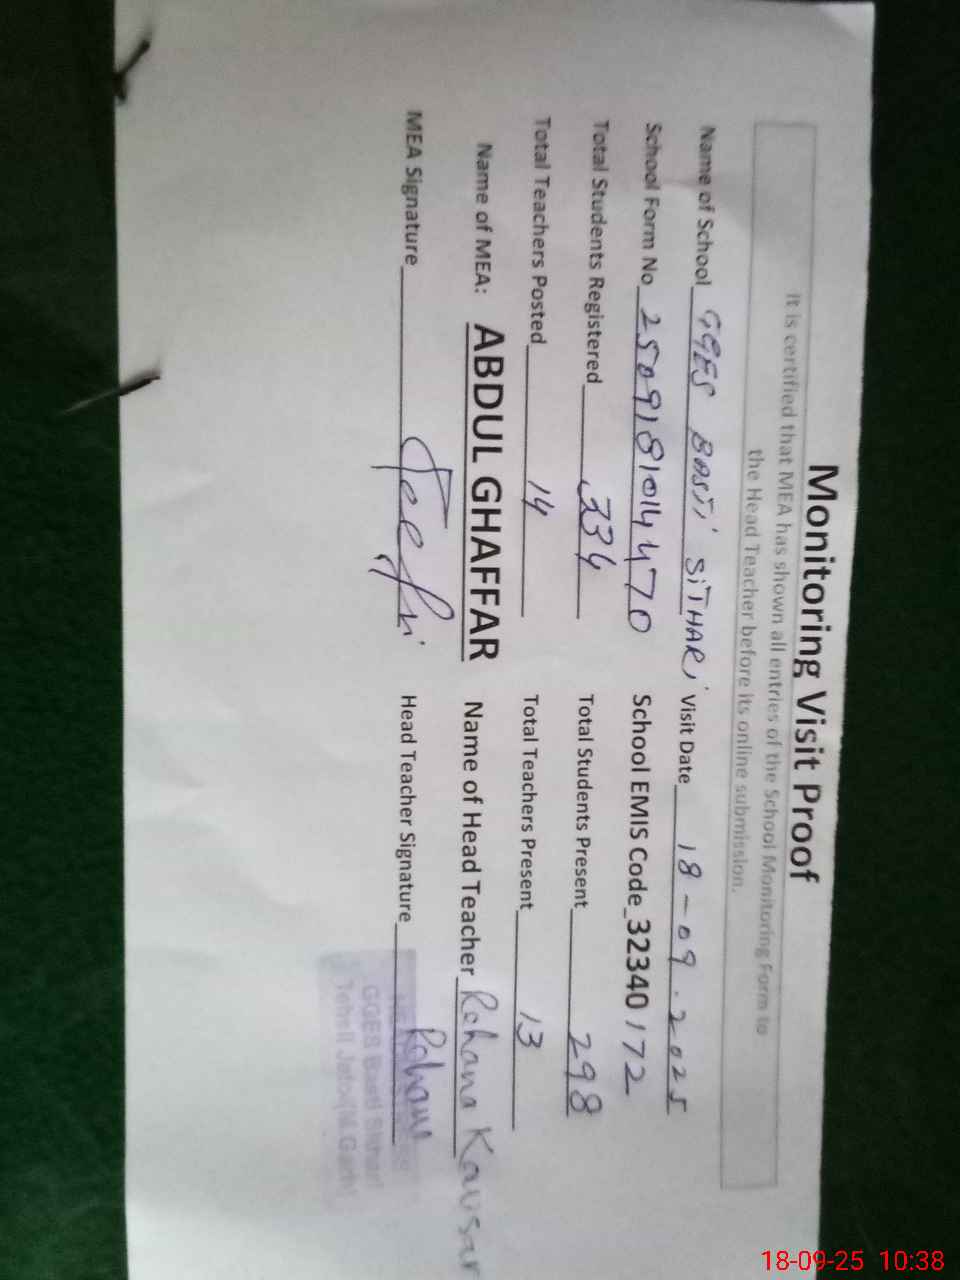 Monitoring Visit Proof
It is certified that MEA has shown all entries of the School Monitoring Form to
the Head Teacher before its online submission.
Name of School GGES BASTI SITHARI Visit Date 18-09-2025
School Form No 2509181014470 School EMIS Code 32340172
Total Students Registered 334 Total Students Present 298
Total Teachers Posted 14 Total Teachers Present 13
Name of MEA: ABDUL GHAFFAR Name of Head Teacher Rehana Kausar
MEA Signature Head Teacher Signature Rehana
GGES Basti Sithari
18-09-25 10:38